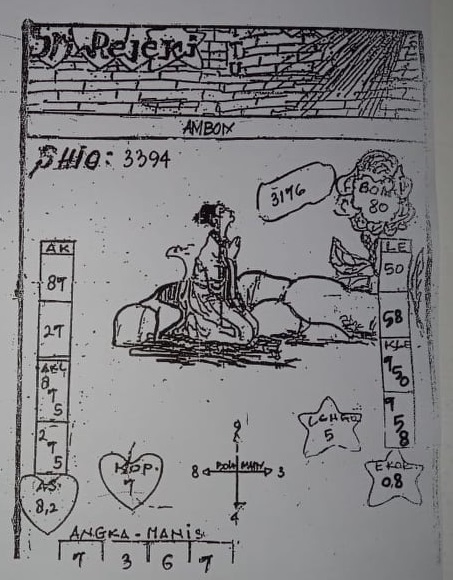 Sri Rejeki
AMBON
SHIO: 3394
3176
BOM
80
AK
87
27
AKL
8
7
5
2
7
5
AS.
8,2
LE
50
58
KLE
9
5
0
9
5
8
KOP.
7
8
3
4
5
EKOR
0.8
ANGKA-MANIS
7 3 6 7